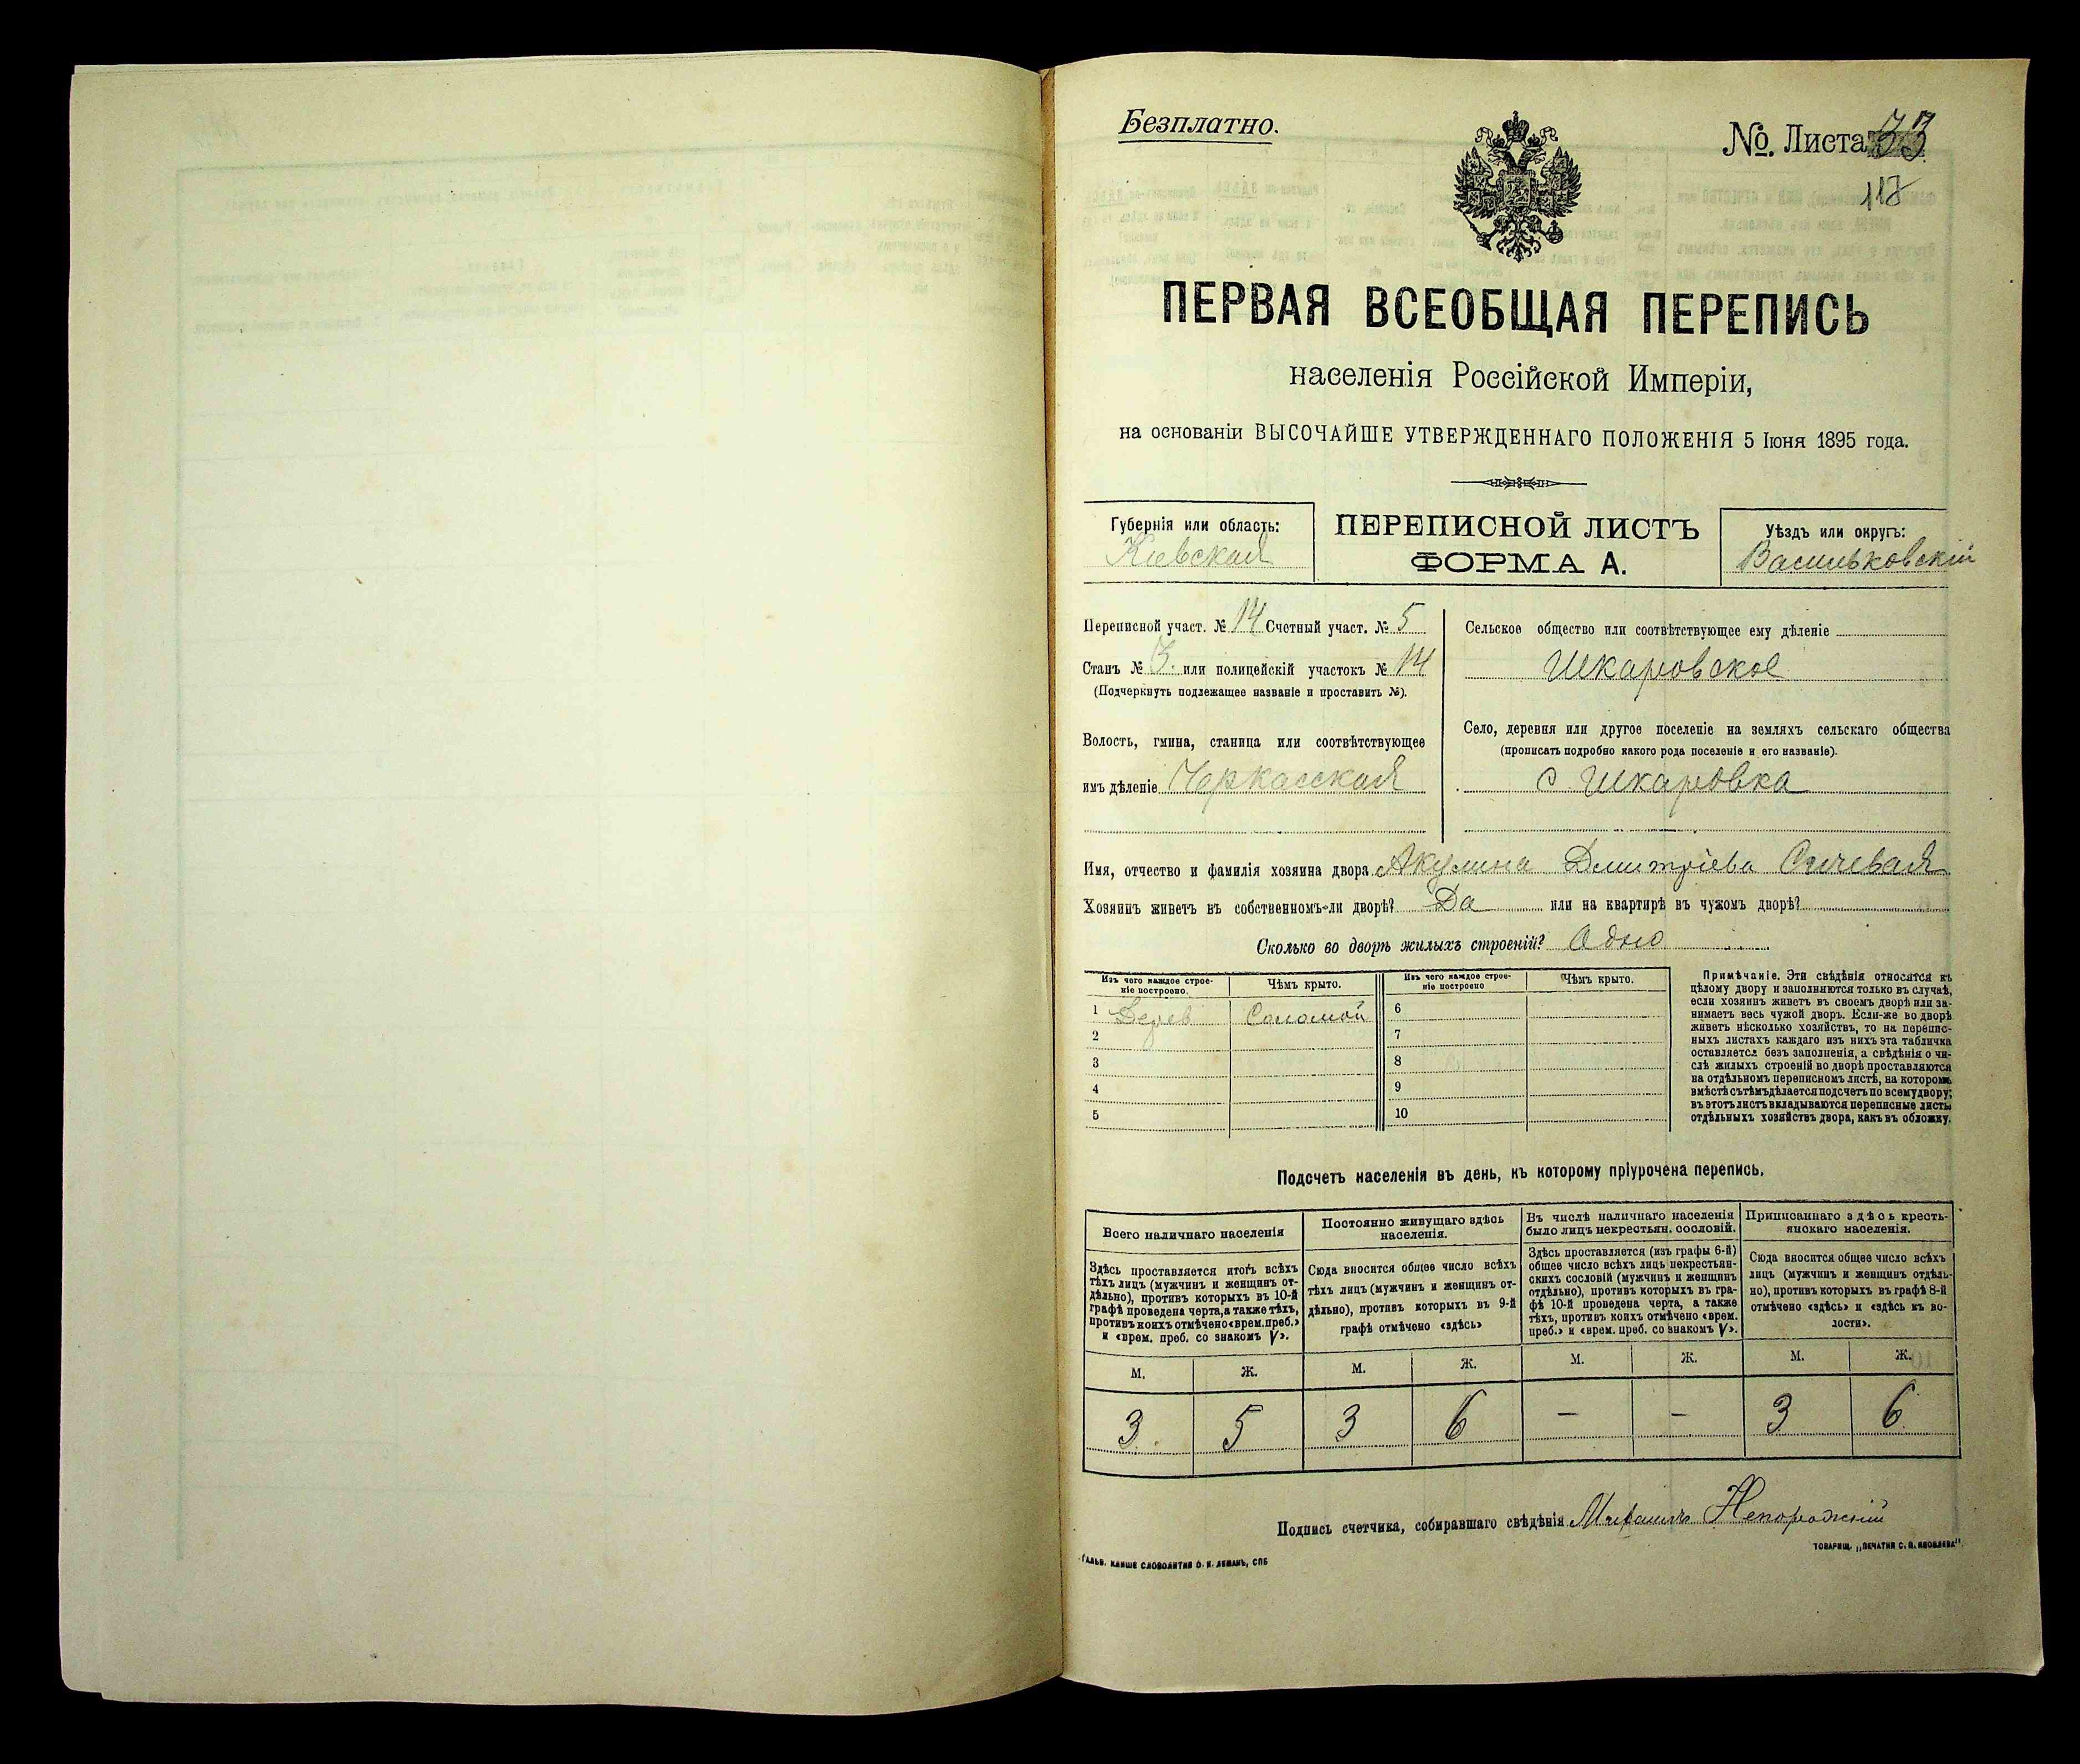 Безплатно.
№. Листа 33
118
ПЕРВАЯ ВСЕОБЩАЯ ПЕРЕПИСЬ
населенія Россійской Имперіи,
на основаніи ВЫСОЧАЙШЕ УТВЕРЖДЕННАГО ПОЛОЖЕНІЯ 5 Іюня 1895 года.
Губернія или область:
Кіевская
ПЕРЕПИСНОЙ ЛИСТЪ
ФОРМА А.
Уѣздъ или округъ:
Васильковскій
Переписной участ. № 14 Счетный участ. № 5
Станъ № 3. или полицейскій участокъ № 14
(Подчеркнуть подлежащее названіе и проставить №).
Волость, гмина, станица или соотвѣтствующее
имъ дѣленіе Черкасская
Сельское общество или соотвѣтствующее ему дѣленіе
Шкаровское
Село, деревня или другое поселеніе на земляхъ сельскаго общества
(прописать подробно какого рода поселеніе и его названіе).
с. Шкаровка
Имя, отчество и фамилія хозяина двора Акулина Дмитріева Сычевая
Хозяинъ живетъ въ собственномъ-ли дворѣ? Да или на квартирѣ въ чужомъ дворѣ?
Сколько во дворѣ жилыхъ строеній? Одно
Изъ чего каждое строе-
ніе построено.
Чѣмъ крыто.
Изъ чего каждое строе-
ніе построено
Чѣмъ крыто.
1 Дерев Соломой 6
2 7
3 8
4 9
5 10
Примѣчаніе. Эти свѣдѣнія относятся къ
цѣлому двору и заполняются только въ случаѣ,
если хозяинъ живетъ въ своемъ дворѣ или за-
нимаетъ весь чужой дворъ. Если-же во дворѣ
живетъ нѣсколько хозяйствъ, то на перепис-
ныхъ листахъ каждаго изъ нихъ эта табличка
оставляется безъ заполненія, а свѣдѣнія о чи-
слѣ жилыхъ строеній во дворѣ проставляются
на отдѣльномъ переписномъ листѣ, на которомъ
вмѣстѣ съ тѣмъ дѣлается подсчетъ по всему двору;
въ этотъ листъ вкладываются переписные листы
отдѣльныхъ хозяйствъ двора, какъ въ обложку.
Подсчетъ населенія въ день, къ которому пріурочена перепись.
Всего наличнаго населенія
Здѣсь проставляется итогъ всѣхъ
тѣхъ лицъ (мужчинъ и женщинъ от-
дѣльно), противъ которыхъ въ 10-й
графѣ проведена черта, а также тѣхъ,
противъ коихъ отмѣчено «врем. преб.»
и «врем. преб. со знакомъ V».
Постоянно живущаго здѣсь
населенія.
Сюда вносится общее число всѣхъ
тѣхъ лицъ (мужчинъ и женщинъ от-
дѣльно), противъ которыхъ въ 9-й
графѣ отмѣчено «здѣсь»
Въ числѣ наличнаго населенія
было лицъ некрестьян. сословій.
Здѣсь проставляется (изъ графы 6-й)
общее число всѣхъ лицъ некрестьян-
скихъ сословій (мужчинъ и женщинъ
отдѣльно), противъ которыхъ въ гра-
фѣ 10-й проведена черта, а также
тѣхъ, противъ коихъ отмѣчено «врем.
преб.» и «врем. преб. со знакомъ V».
Приписаннаго здѣсь кресть-
янскаго населенія.
Сюда вносится общее число всѣхъ
лицъ (мужчинъ и женщинъ отдѣль-
но), противъ которыхъ въ графѣ 8-й
отмѣчено «здѣсь» и «здѣсь къ во-
лости».
М. Ж. М. Ж. М. Ж. М. Ж.
3 5 3 6 – – 3 6
Подпись счетчика, собиравшаго свѣдѣнія Михаилъ Непорожній
Гальв. клише словолитни О. И. Леманъ, СПБ
Товарищ. „Печатня С. П. Яковлева“